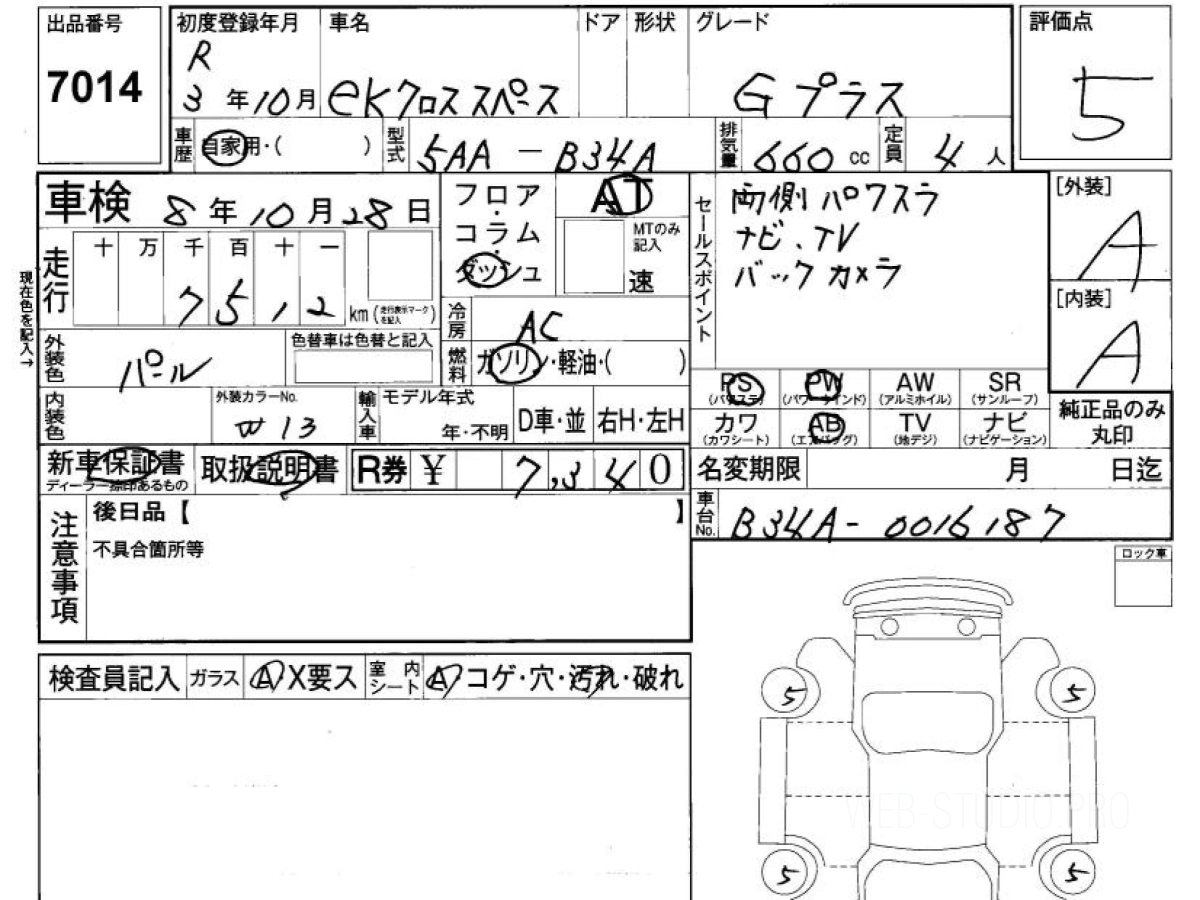 出品番号
7014
初度登録年月
R
3年10月
車名
eKクロススペース
ドア
形状
グレード
Gプラス
評価点
5
車歴
自家用・( )
型式
5AA - B34A
排気量
660 cc
定員
4人
車検
8年10月28日
フロア
・
コラム
・
ダッシュ
AT
MTのみ
記入
速
セールスポイント
両側パワスラ
ナビ、TV
バックカメラ
[外装]
A
[内装]
A
現在色を記入→
走行
十 万 千 百 十 一
7 5 1 2
km(走行表示マークを記入)
冷房
AC
外装色
パール
色替車は色替と記入
燃料
ガソリン・軽油・( )
PS
(パワステ)
PW
(パワーウインド)
AW
(アルミホイル)
SR
(サンルーフ)
カワ
(カワシート)
AB
(エアバッグ)
TV
(地デジ)
ナビ
(ナビゲーション)
純正品のみ
丸印
内装色
外装カラーNo.
W13
輸入車
モデル年式
年・不明
D車・並
右H・左H
新車保証書
ディーラー捺印あるもの
取扱説明書
R券 ¥ 7,3 4 0
名変期限
月 日迄
車台No.
B34A-0016187
注意事項
後日品【 】
不具合箇所等
ロック車
検査員記入
ガラス
A X要ス
室内シート
A コゲ・穴・汚れ・破れ
5
5
WEB-STUDIO PRO
5
5